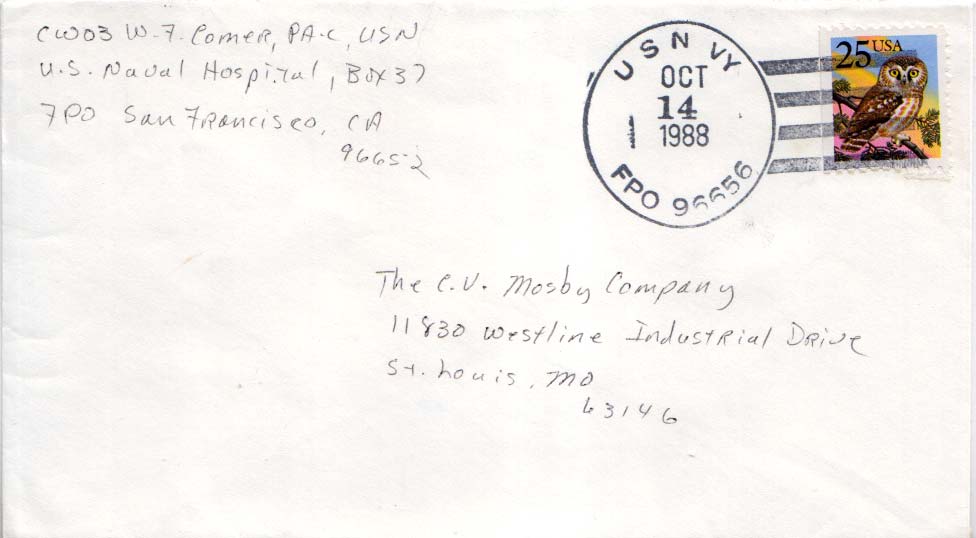 CWO3 W.F. Comer, PA-C, USN
U.S. Naval Hospital, Box 37
FPO San Francisco, CA
96652
USN VY
OCT
14
1988
FPO 96656
25 USA
The C.V. Mosby Company
11830 Westline Industrial Drive
St. Louis, MO
63146